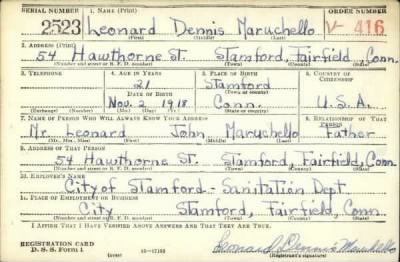 SERIAL NUMBER 1. NAME (Print) ORDER NUMBER
2523 Leonard Dennis Maruchello V-416
(First) (Middle) (Last)
2. ADDRESS (Print)
54 Hawthorne St. Stamford, Fairfield, Conn.
(Number and street or R. F. D. number) (Town) (County) (State)
3. TELEPHONE 4. AGE IN YEARS 5. PLACE OF BIRTH 6. COUNTRY OF CITIZENSHIP
21 Stamford
DATE OF BIRTH (Town or county)
Nov. 2 1918 Conn. U.S.A.
(Exchange) (Number) (Mo.) (Day) (Yr.) (State or country)
7. NAME OF PERSON WHO WILL ALWAYS KNOW YOUR ADDRESS 8. RELATIONSHIP OF THAT PERSON
Mr. Leonard John Maruchello Father
(Mr., Mrs., Miss) (First) (Middle) (Last)
9. ADDRESS OF THAT PERSON
54 Hawthorne St. Stamford, Fairfield, Conn.
(Number and street or R. F. D. number) (Town) (County) (State)
10. EMPLOYER'S NAME
City of Stamford - Sanitation Dept.
11. PLACE OF EMPLOYMENT OR BUSINESS
City Stamford, Fairfield, Conn.
(Number and street or R. F. D. number) (Town) (County) (State)
I AFFIRM THAT I HAVE VERIFIED ABOVE ANSWERS AND THAT THEY ARE TRUE.
REGISTRATION CARD
D. S. S. FORM 1 (over) 16-17105 Leonard Dennis Maruchello
(Registrant's signature)